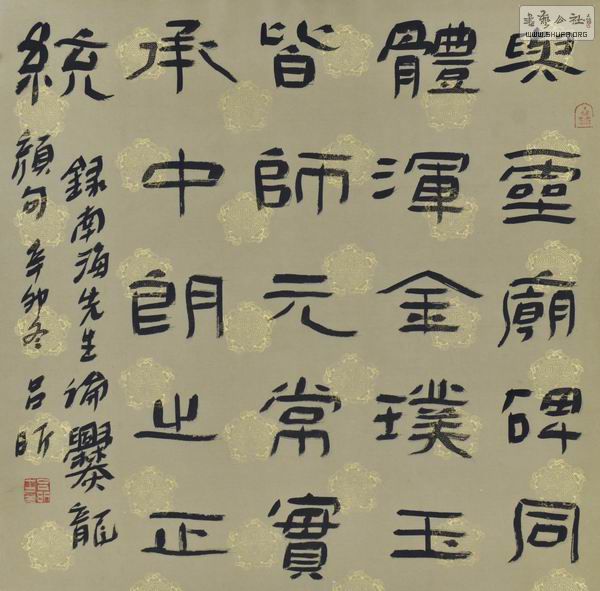 與靈廟碑同
體渾金璞玉
皆師元常實
承中朗之正
統
錄南海先生論爨龍
顏句辛卯冬 吕昕
書藝公社
WWW.SHUFA.ORG